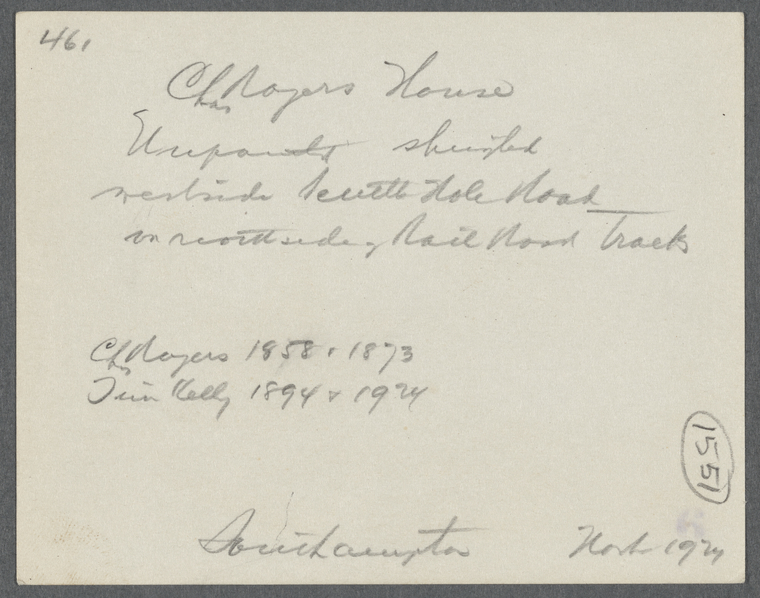 461
Chas Rogers House
Unpainted shingled
westside Scuttle Hole Road
on northside of Rail Road Track
Chas Rogers 1858 & 1873
Tim Kelly 1894 & 1924
1551
Southampton 1924